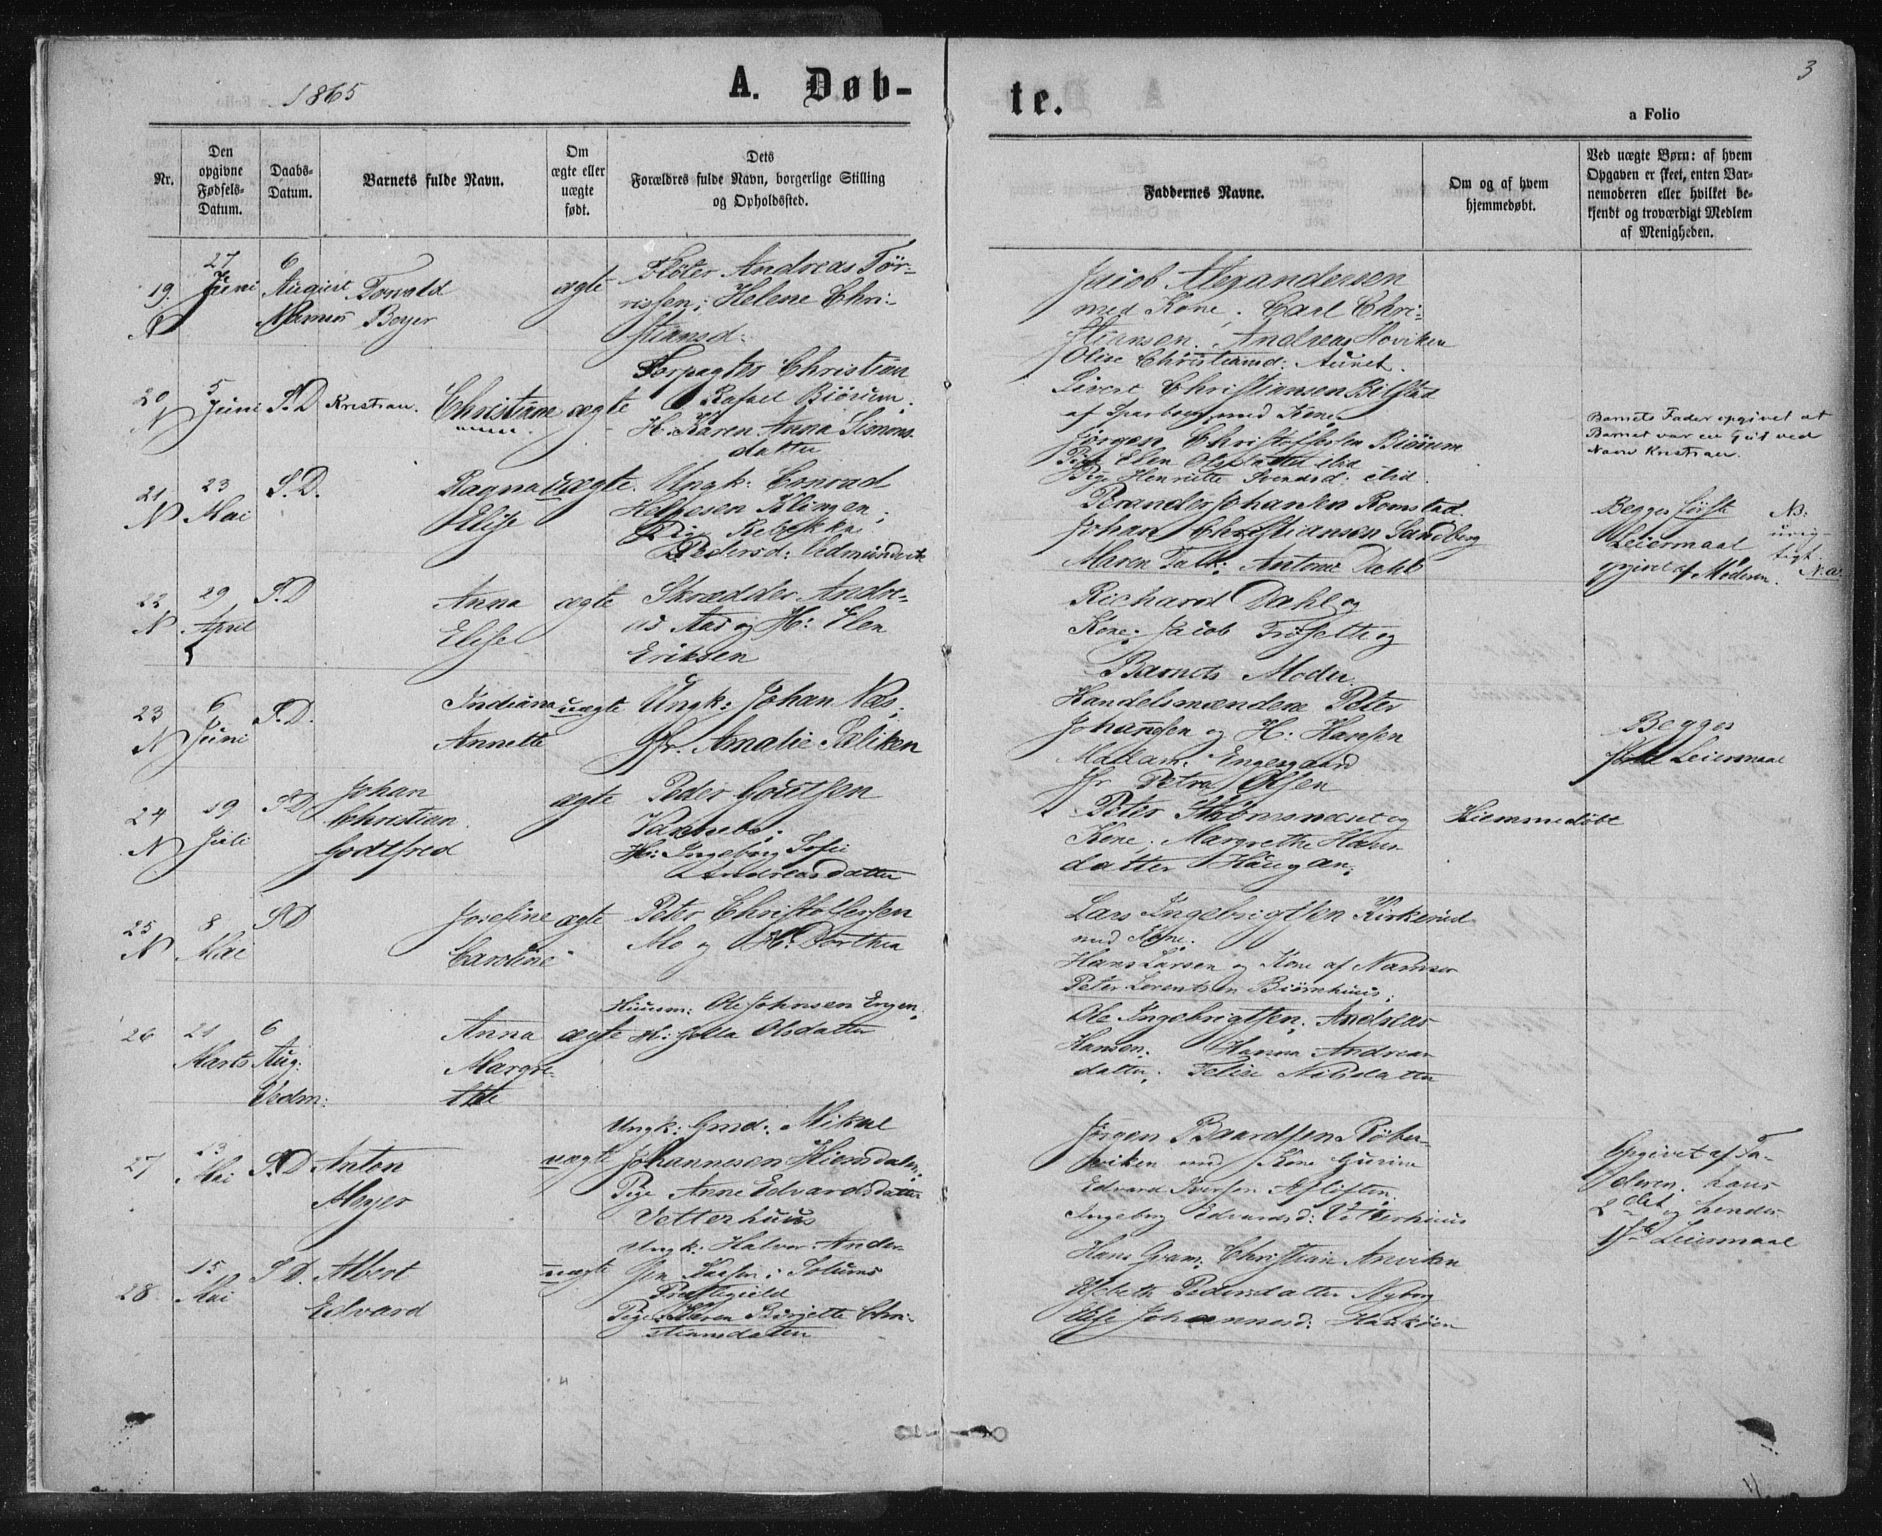 1865
A. Døb-
te.
3
a Folio
Nr.
Den
opgivne
Fødsels-
Datum.
Daabs-
Datum.
Barnets fulde Navn.
Om
ægte eller
uægte
født.
Dets
Forældres fulde Navn, borgerlige Stilling
og Opholdssted.
Faddernes Navne.
Om og af hvem
hjemmedøbt.
Ved uægte Børn: af hvem
Opgaven er skeet, enten Bar-
nemoderen eller hvilket be-
kjendt og troværdigt Medlem
af Menigheden.
19
N
27
Juni
6
August
Torvald
Beyer
ægte
Andreas Tør-
Helene Chri-
stiansd:
Jacob Alexandersen
med Kone. Carl Chri-
stiansen. Andreas Hoviken
Olise Christiansd: Aunet.
20
N
5
Juni
S.D
Kristian.
Christian
ægte
Forpagter Christian
Rafael Biørum.
H: Karen Anna Simons
datter
Sivert Christiansen Bilstad
af Sparboen med Kone
Jørgen Christoffersen Biørum
Pige Elen
Pige Henriette Svendsd: ibid.
Barnets Fader opgivet at
Barnet var en Gut ved
Navn Kristian.
21
N
23
Mai
S.D.
Ragna
Elise
uægte.
Ungk: Conrad
Klingen;
Pige Rebekka
Pedersd: Vedmundvik
Johansen Romstad.
Johan Christiansen Sandberg
Maren Falk; Antone Dahl
Begges første
Leiermaal
opgivet af Moderen.
NB:
urig-
tigt.
22
N
29
April
S.D
Anna
Elise
ægte
Skrædder Andre-
as Aas og H: Elen
Eriksen
Richard Dahl og
Kone. Jacob Trøsette og
Barnets Moder.
23
N
6
Juni
S.D.
Indiana
Annette
uægte
Ungk: Johan Næs;
Jfr. Amalie Seliken
Handelsmændene Peter
Johansen og H: Hansen
Madam: Engesgaard
Jfr Petra Olsen
Begges
Leiermaal
24
N
19
Juli
S.D
Johan
Christian
Godtfred
ægte
Peder
H: Ingeborg Sofie
Andreasdatter
Peter Strømsnæset og
Kone. Margrethe Hans
datter Haugan.
Hiemmedøbt
25
N
8
Mai
S.D
Josefine
Caroline
ægte
Peter Christoffersen
Mo og H: Dorthea
Lars Ingebrigtsen Kirkerud
med Kone.
Hans Larsen og Kone af Namsos
Peter Lorentsen Biørnhuus.
26
21
Marts
6
Aug:
Vedm:
Anna
Margre-
the
ægte
Huusm: Ole Johnsen Engen.
H: Olsdatter
Ole Ingebrigtsen. Andreas
Hansen. Hanna Andreas-
datter. Nilsdatter
27
13
Mai
S.D
Anton
Meyer
uægte
Ungk: Gmd: Mikal
Johannesen Hiemdalen.
Pige Anne Edvardsdatter
Vetterhuus
Jørgen Baardtsen Røber-
viken med Kone Gurine
Edvard Iversen
Ingeborg Edvardsd: Vetterhuus
Opgivet af Fa-
deren. hans
2det og hendes
1ste Leiermaal
28
15
Mai
S.D.
Albert
Edvard
uægte
Ungk: Halvor Ander-
sen Solums
Præstegield
Pige: Karen Birgette Chri-
stiansdatter
Hans Gram; Christian Anviken
Elsebeth Pedersdatter Nyborg
Elise Johannesd: